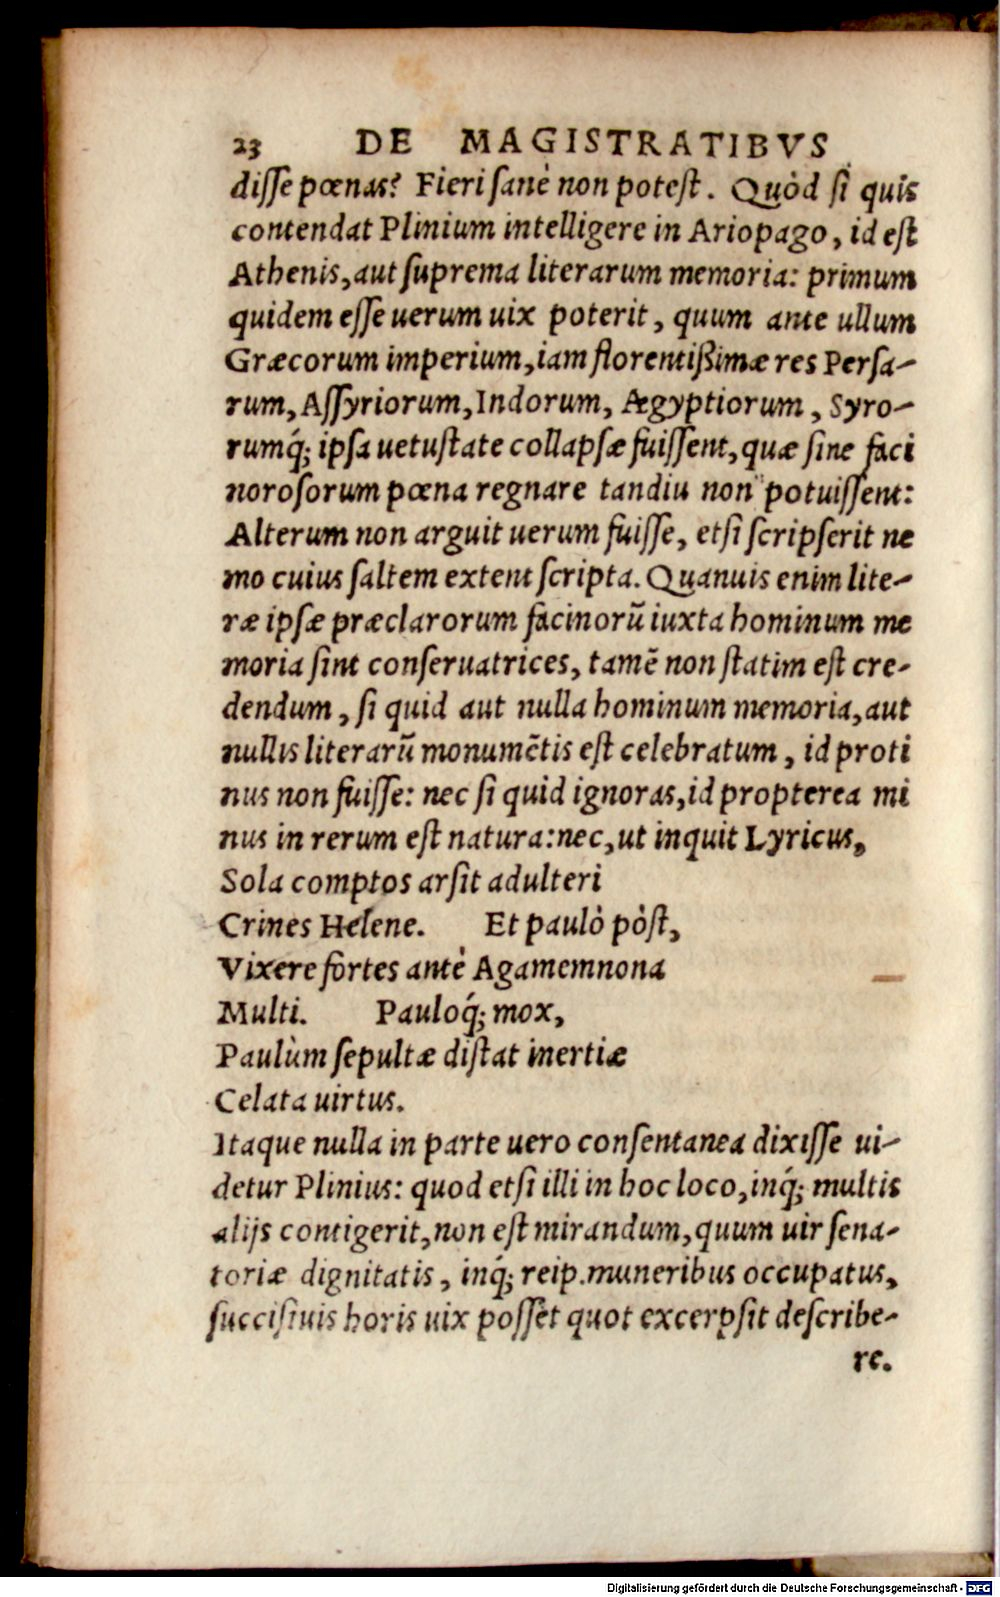 23 DE MAGISTRATIBVS
disse pœnas? Fieri sanè non potest. Quòd si quis
contendat Plinium intelligere in Ariopago, id est
Athenis, aut suprema literarum memoria: primum
quidem esse uerum uix poterit, quum ante ullum
Græcorum imperium, iam florentißimæ res Persa-
rum, Assyriorum, Indorum, Ægyptiorum, Syro-
rumq́; ipsa uetustate collapsæ fuissent, quæ sine faci
norosorum pœna regnare tandiu non potuissent:
Alterum non arguit uerum fuisse, etsi scripserit ne
mo cuius saltem extent scripta. Quanuis enim lite-
ræ ipsæ præclarorum facinorũ iuxta hominum me
moria sint conseruatrices, tamẽ non statim est cre-
dendum, si quid aut nulla hominum memoria, aut
nullis literarũ monumẽtis est celebratum, id proti
nus non fuisse: nec si quid ignoras, id propterea mi
nus in rerum est natura: nec, ut inquit Lyricus,
Sola comptos arsit adulteri
Crines Helene. Et paulò pòst,
Vixere fortes antè Agamemnona
Multi. Pauloq́; mox,
Paulùm sepultæ distat inertiæ
Celata uirtus.
Itaque nulla in parte uero consentanea dixisse ui-
detur Plinius: quod etsi illi in hoc loco, inq́; multis
alijs contigerit, non est mirandum, quum uir sena-
toriæ dignitatis, inq́; reip. muneribus occupatus,
succisiuis horis uix posset quot excerpsit describe-
re.
Digitalisierung gefördert durch die Deutsche Forschungsgemeinschaft - DFG